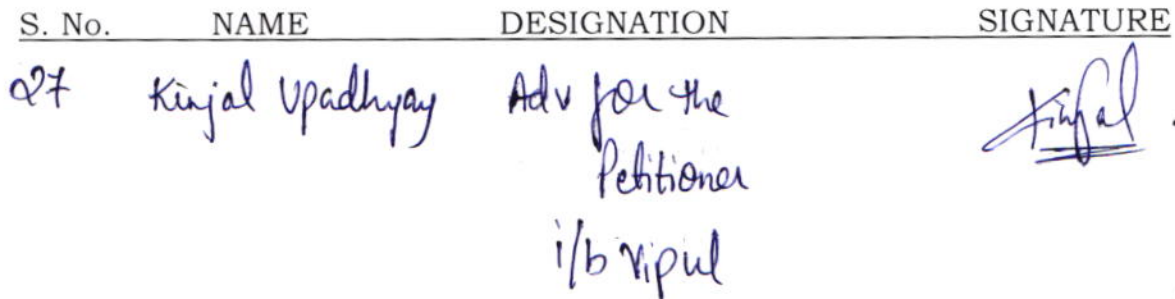 S. No. NAME DESIGNATION SIGNATURE
27 Kinjal Upadhyay Adv for the Kinjal.
Petitioner
i/b Vipul